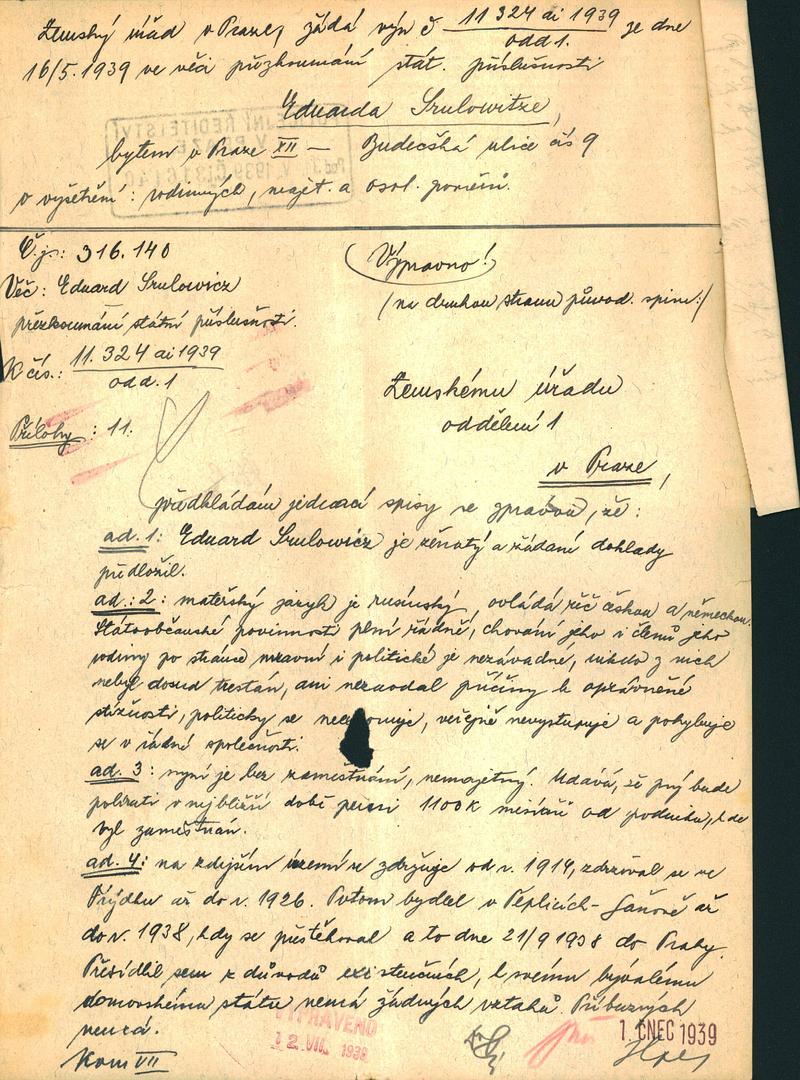 Zemský úřad v Praze, žádá výn č 11 324 ai 1939 ze dne
odd 1.
16/5.1939 ve věci přezkoumání stát. příslušnosti
Eduarda Szulowitze,
bytem v Praze XII — Budečská ulice čís 9
o vyšetření: rodinných, majet. a osob. poměrů.
Č.j.: 316.140
Výpravno!
Věc: Eduard Szulowicz
(na druhou stranu původ. spisu:/
přezkoumání státní příslušnosti.
K čís.: 11.324 ai 1939
odd. 1
Zemskému úřadu
oddělení 1
Přílohy: 11.
v Praze,
předkládám jednací spisy se zprávou, že:
ad. 1: Eduard Szulowicz je ženatý a žádané doklady
předložil.
ad.: 2: mateřský jazyk je rusínský, ovládá řeč českou a německou.
Státoobčanské povinnosti plní řádně, chování jeho i členů jeho
rodiny po stránce mravní i politické je nezávadné, nikdo z nich
nebyl dosud trestán, ani nezavdal příčiny k oprávněné
stížnosti, politicky se, veřejně nevystupuje a pohybuje
se v řádné společnosti.
ad. 3: nyní je bez zaměstnání, nemajetný. Udává, že prý bude
pobírati v nejbližší době pensi 1100 K měsíčně od podniku, kde
byl zaměstnán.
ad. 4: na zdejším území se zdržuje od r. 1914, zdržoval se ve
Frýdku až do r. 1926. Potom bydlel v Teplicích-Šanově až
do r. 1938, kdy se přistěhoval a to dne 21/9 1938 do Prahy.
Přesídlil sem z důvodů existenčních, k svému bývalému
domovskému státu nemá žádných vztahů. Příbuzných
nemá.
VYPRAVENO
12. VII. 1939
1. ČNEC 1939
Kom VII